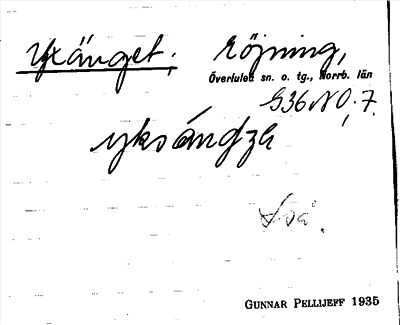 Yxänget, röjning,
Överluleå sn. o. tg., Norrb. län
G36 NO, 7.
yksándza
GUNNAR PELLIJEFF 1935